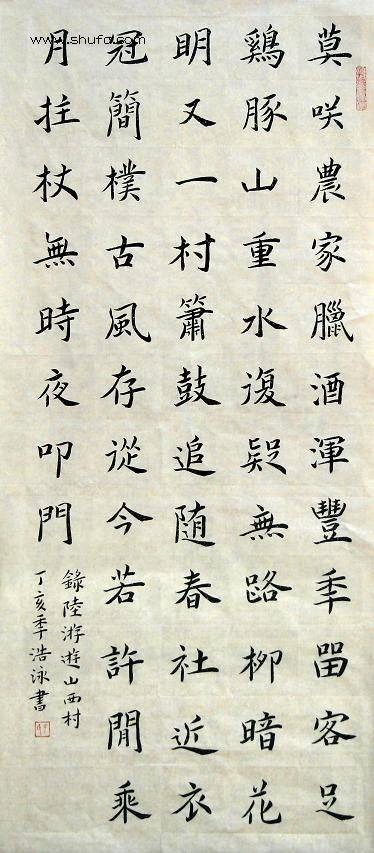 莫咲農家臘酒渾豐秊留客足
鷄豚山重水復疑無路柳暗花
明又一村簫鼓追随春社近衣
冠簡樸古風存從今若許閒乘
月拄杖無時夜叩門
錄陸游遊山西村
丁亥秊浩泳書
www.shufa.com